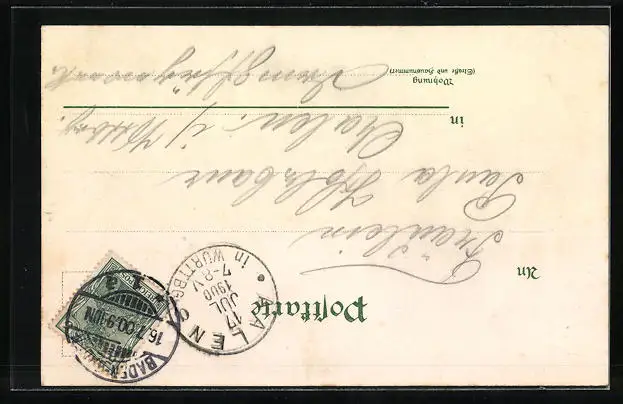 Postkarte
An
Fräulein
Paula Holzbaur
in Aalen i/ Wttbg.
Wohnung
(Straße und Hausnummer)
AALEN
17
JUL
1900
7-8 V.
in WÜRTTBG
BADEN
16.7.00.9-10N